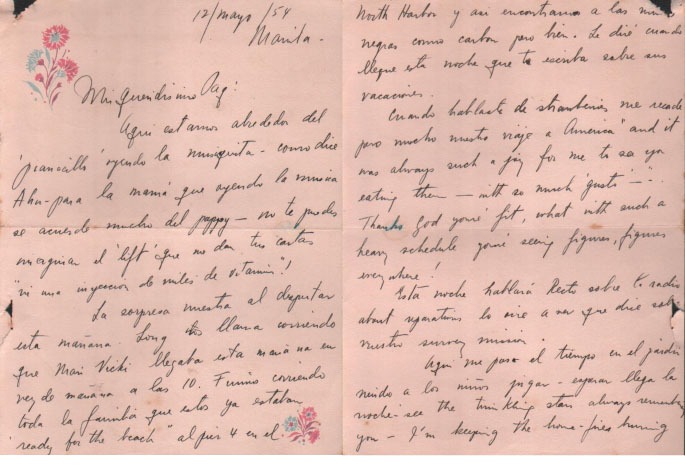 12/mayo/54
Manila -
Mi queridisimo
Aqui estamos alrededor del
oyendo la musiquita - como dice
para la mamá que oyendo la musica
se acuerda mucho del pappy - no te puedes
imaginar el 'lift' que no dan tus cartas
"ni una inyeccion de miles de vitamin"!
La sorpresa nuestra al despertar
esta mañana. Long llama corriendo
que Mari Vicki llegaba esta mañana en
vez de mañana a las 10. Fuimos corriendo
toda la familia que estos ya estaban
"ready for the beach" al pier 4 en el
North Harbor y asi encontramos a las
negras como carbon pero bien. Le diré cuando
llegue esta noche que te escriba sobre sus
vacaciones.
Cuando hablaste de strawberries me recordé
pero mucho nuestro viaje a America "and it
was always such a joy for me to see you
eating them - with so much 'gusto' -".
Thanks God you're fit, what with such a
heavy schedule you're seeing figures, figures
everywhere!
Esta noche hablará Recto sobre la radio
about reparations lo oire a ver que dice sobre
vuestro survey mission.
Aqui me paso el tiempo en el jardin
viendo a los niños jugar - esperar llega la
noche - see the twinkling stars always remembering
you - I'm keeping the home-fires burning